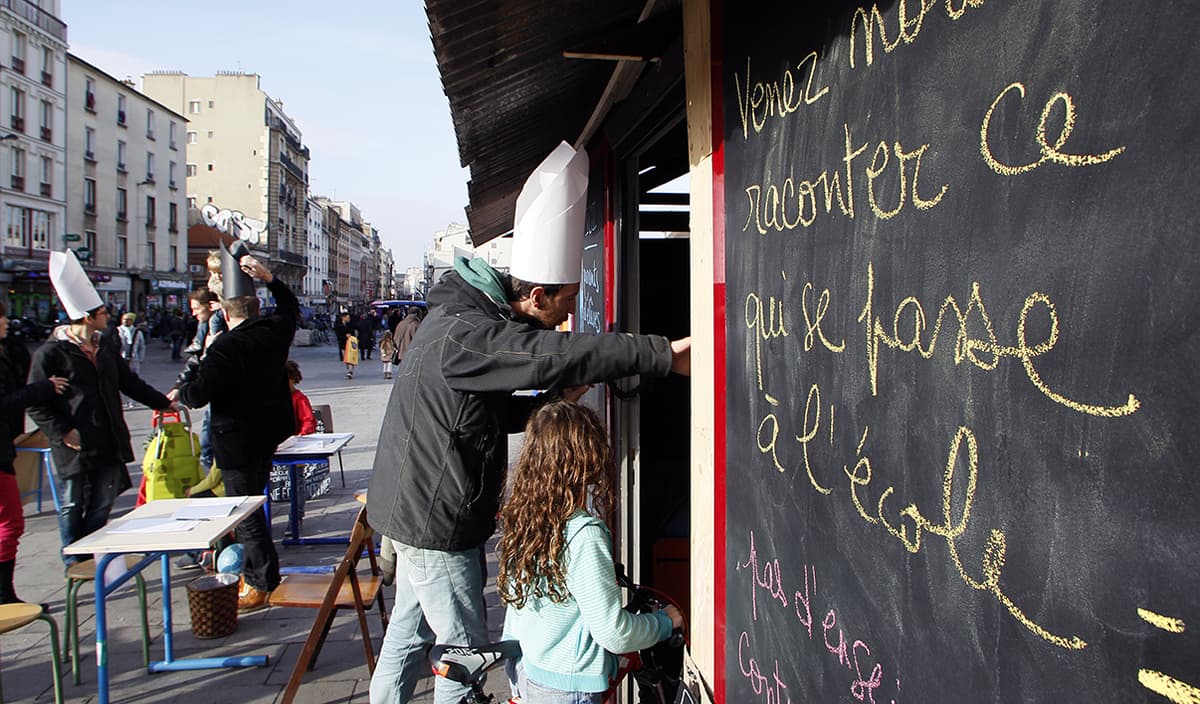 Venez nous
raconter ce
qui se passe
à l'école
pas d'ense
Cont